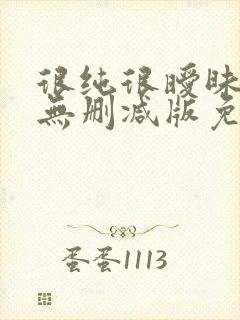 很纯很暧昧
無删减版免
蛋蛋1113